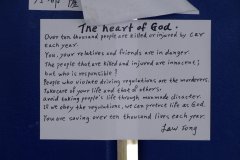 The heart of God.
Over ten thousand people are killed or injured by car
each year.
You, your relatives and friends are in danger.
The people that are killed and injured are innocent;
but who is responsible?
People who violate driving regulations are the murderers.
Take care of your life and that of others.
Avoid taking people's life through manmade disaster.
If we obey the regulations, we can protect life as God.
You are saving over ten thousand lives each year.
Law Tong